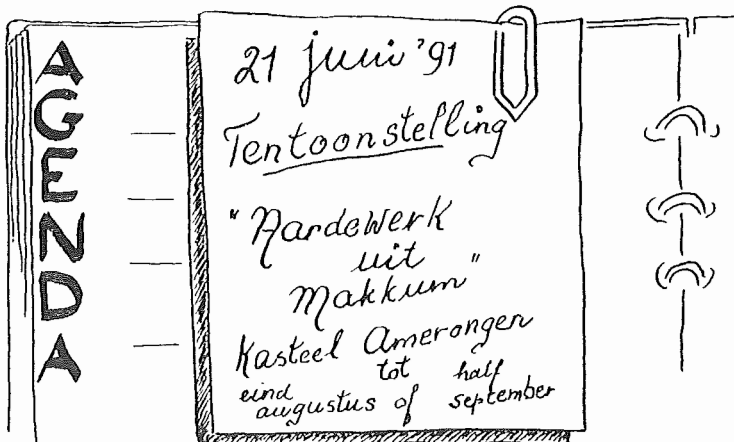 AGENDA
21 juni '91
Tentoonstelling
"Aardewerk
uit
Makkum"
Kasteel Amerongen
tot
eind half
augustus of september